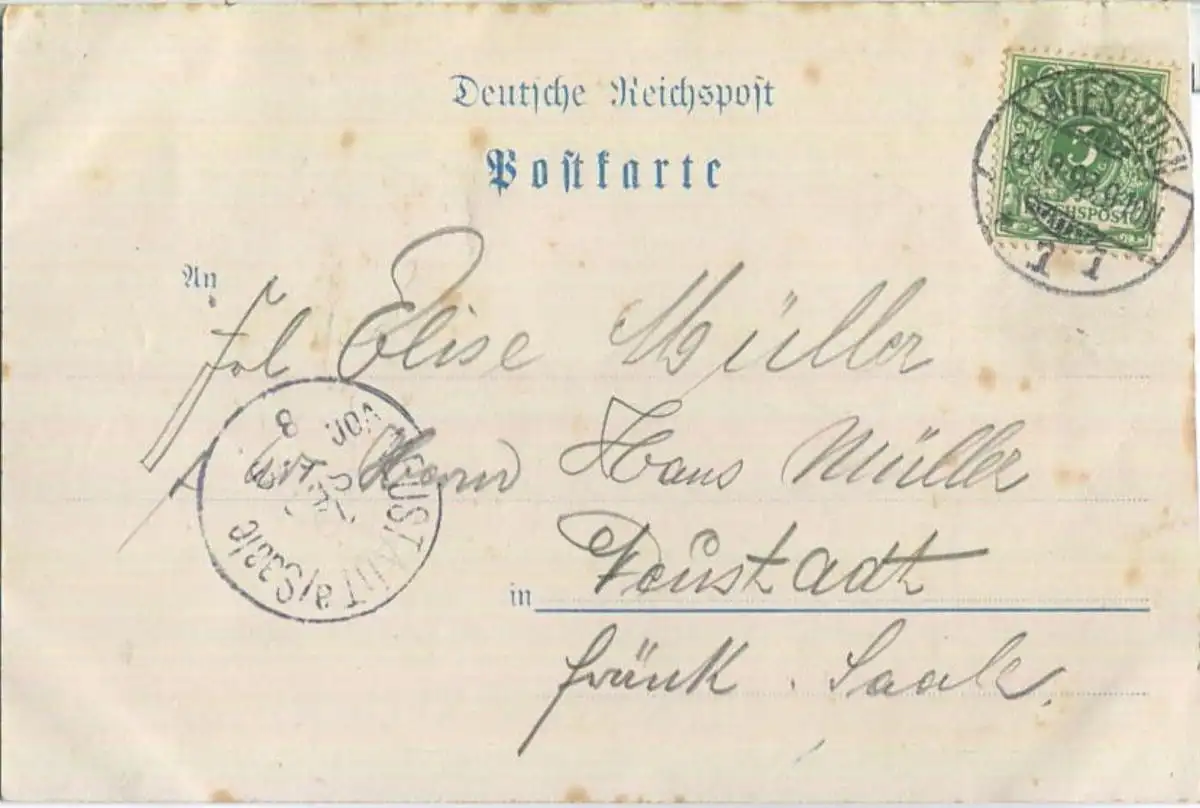 Deutsche Reichspost
Postkarte
WIESBADEN
9-10N
5
REICHSPOST
An
Frl Elise Müller
Herrn Hans Müller
NEUSTADT a/Saale
VOR
8
in Neustadt
fränk. Saale.